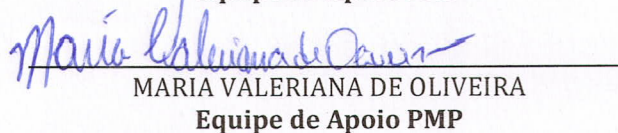 Maria Valeriana de Oliveira
MARIA VALERIANA DE OLIVEIRA
Equipe de Apoio PMP